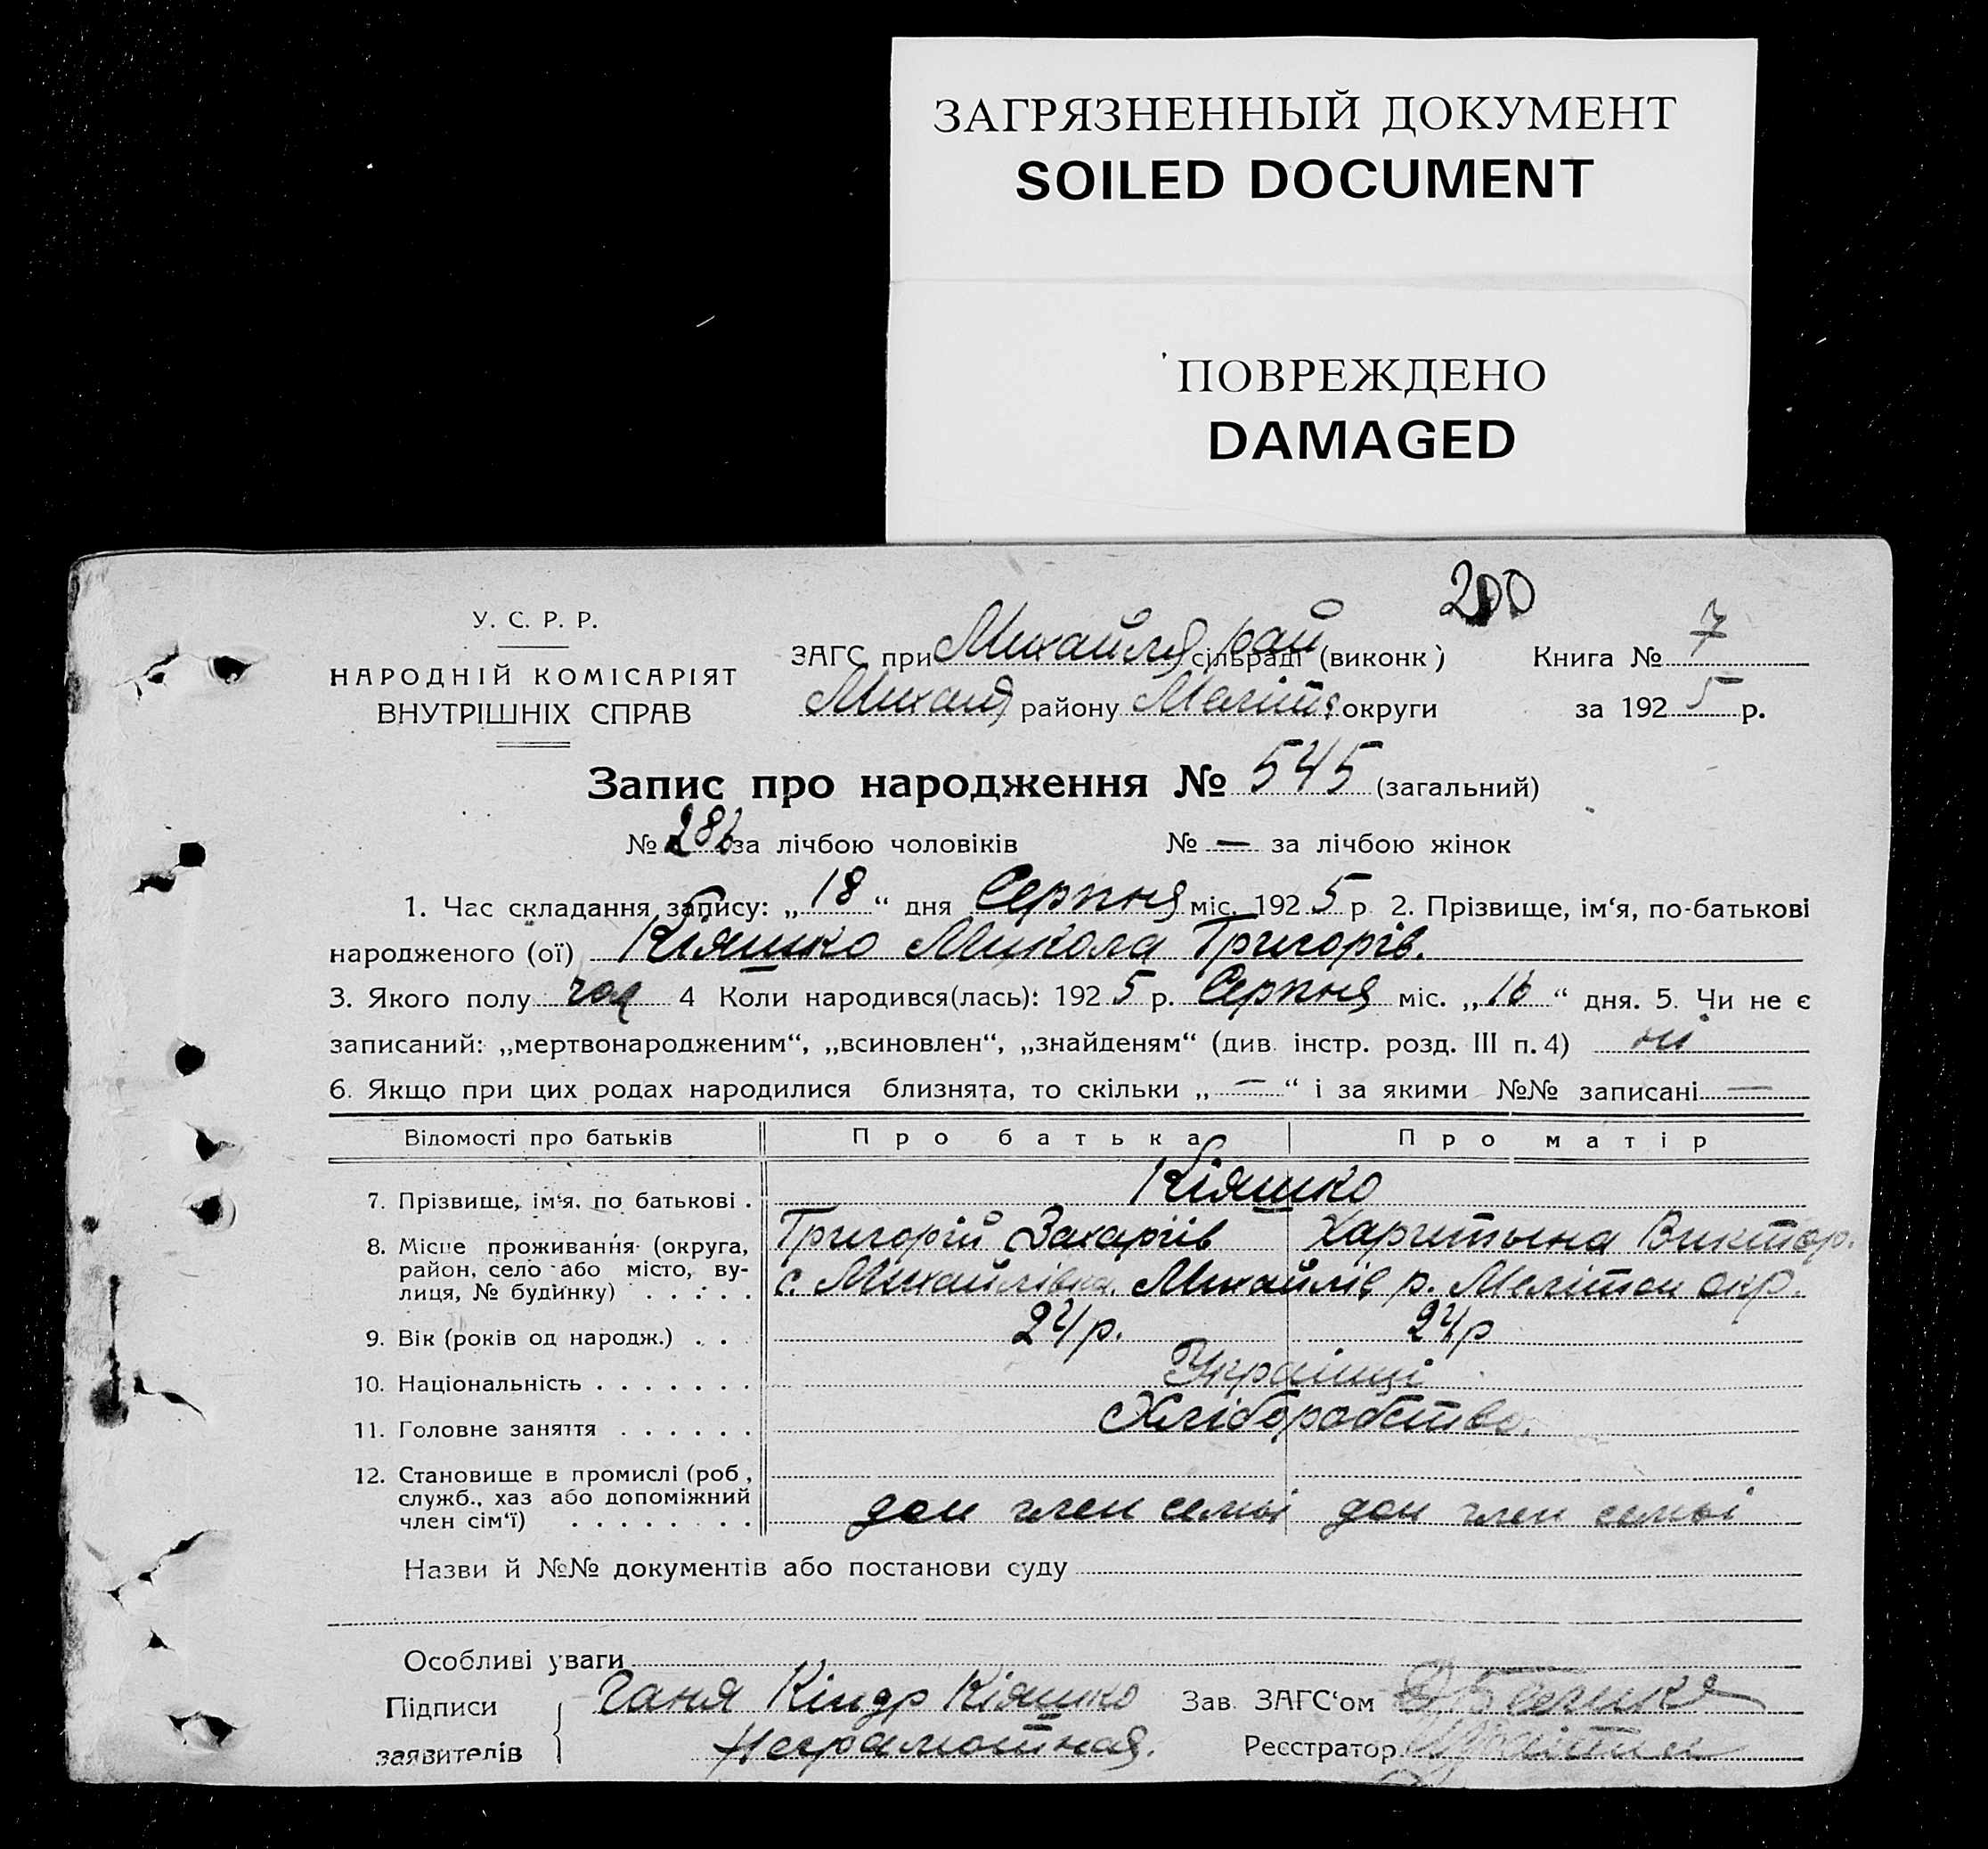 ЗАГРЯЗНЕННЫЙ ДОКУМЕНТ
SOILED DOCUMENT
ПОВРЕЖДЕНО
DAMAGED
200
У. С. Р. Р.
НАРОДНІЙ КОМІСАРІЯТ
ВНУТРІШНІХ СПРАВ
ЗАГС при Михайлів рай сільраді (виконк) Книга № 7
Михайл району Меліт округи за 1925 р.
Запис про народження № 545 (загальний)
№ 286 за лічбою чоловіків № — за лічбою жінок
1. Час складання запису: „18“ дня Серпня міс. 1925 р 2. Прізвище, ім‘я, по-батькові
народженого (ої) Кіяшко Микола Григорів.
3. Якого полу чол 4 Коли народився(лась): 1925 р. Серпня міс. „16“ дня. 5. Чи не є
записаний: „мертвонародженим“, „всиновлен“, „знайденям“ (див. інстр. розд. III п. 4) ні
6. Якщо при цих родах народилися близнята, то скільки „—“ і за якими №№ записані —
Відомості про батьків Про батька Про матір
7. Прізвище, ім‘я, по батькові . Кіяшко
Григорій Захаріїв Харитына Виктор.
8. Місце проживання (округа, район, село або місто, вулиця, № будинку) . . . . . с. Михайлівка. Михайлів р. Мелітоп окр.
9. Вік (років од народж.) . . 24 р. 24 р
10. Національність . . . . . . . Українці
11. Головне заняття . . . . . . Хліборобство.
12. Становище в промислі (роб, служб., хаз або допоміжний член сім‘ї) . . . . . . . . доп член семьі доп член семьі
Назви й №№ документів або постанови суду
Особливі уваги
Підписи заявителів Ганя Кіндр Кіяшко Зав. ЗАГС‘ом
Неграмотная. Реєстратор